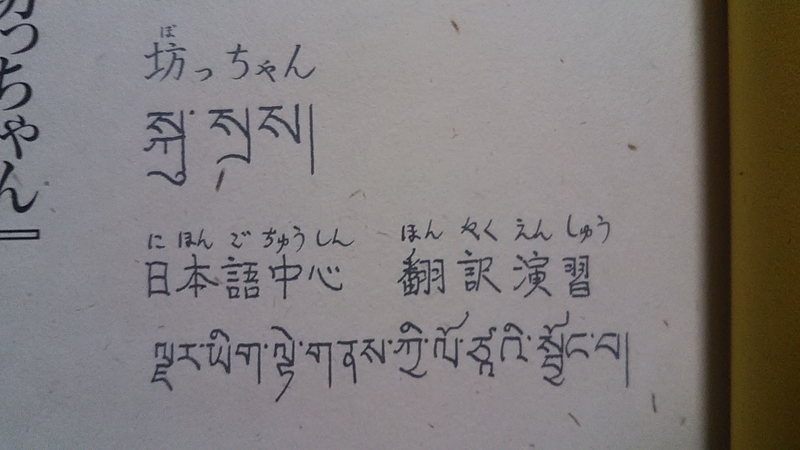 っちゃん』
ぼ
坊っちゃん
སྐུ་སྲས།
にほんごちゅうしん ほんやくえんしゅう
日本語中心 翻訳演習
ཡིག་ལྟེ་གནས་ཀྱི་ལོ་ཙཱའི་སྦྱོང་བ།